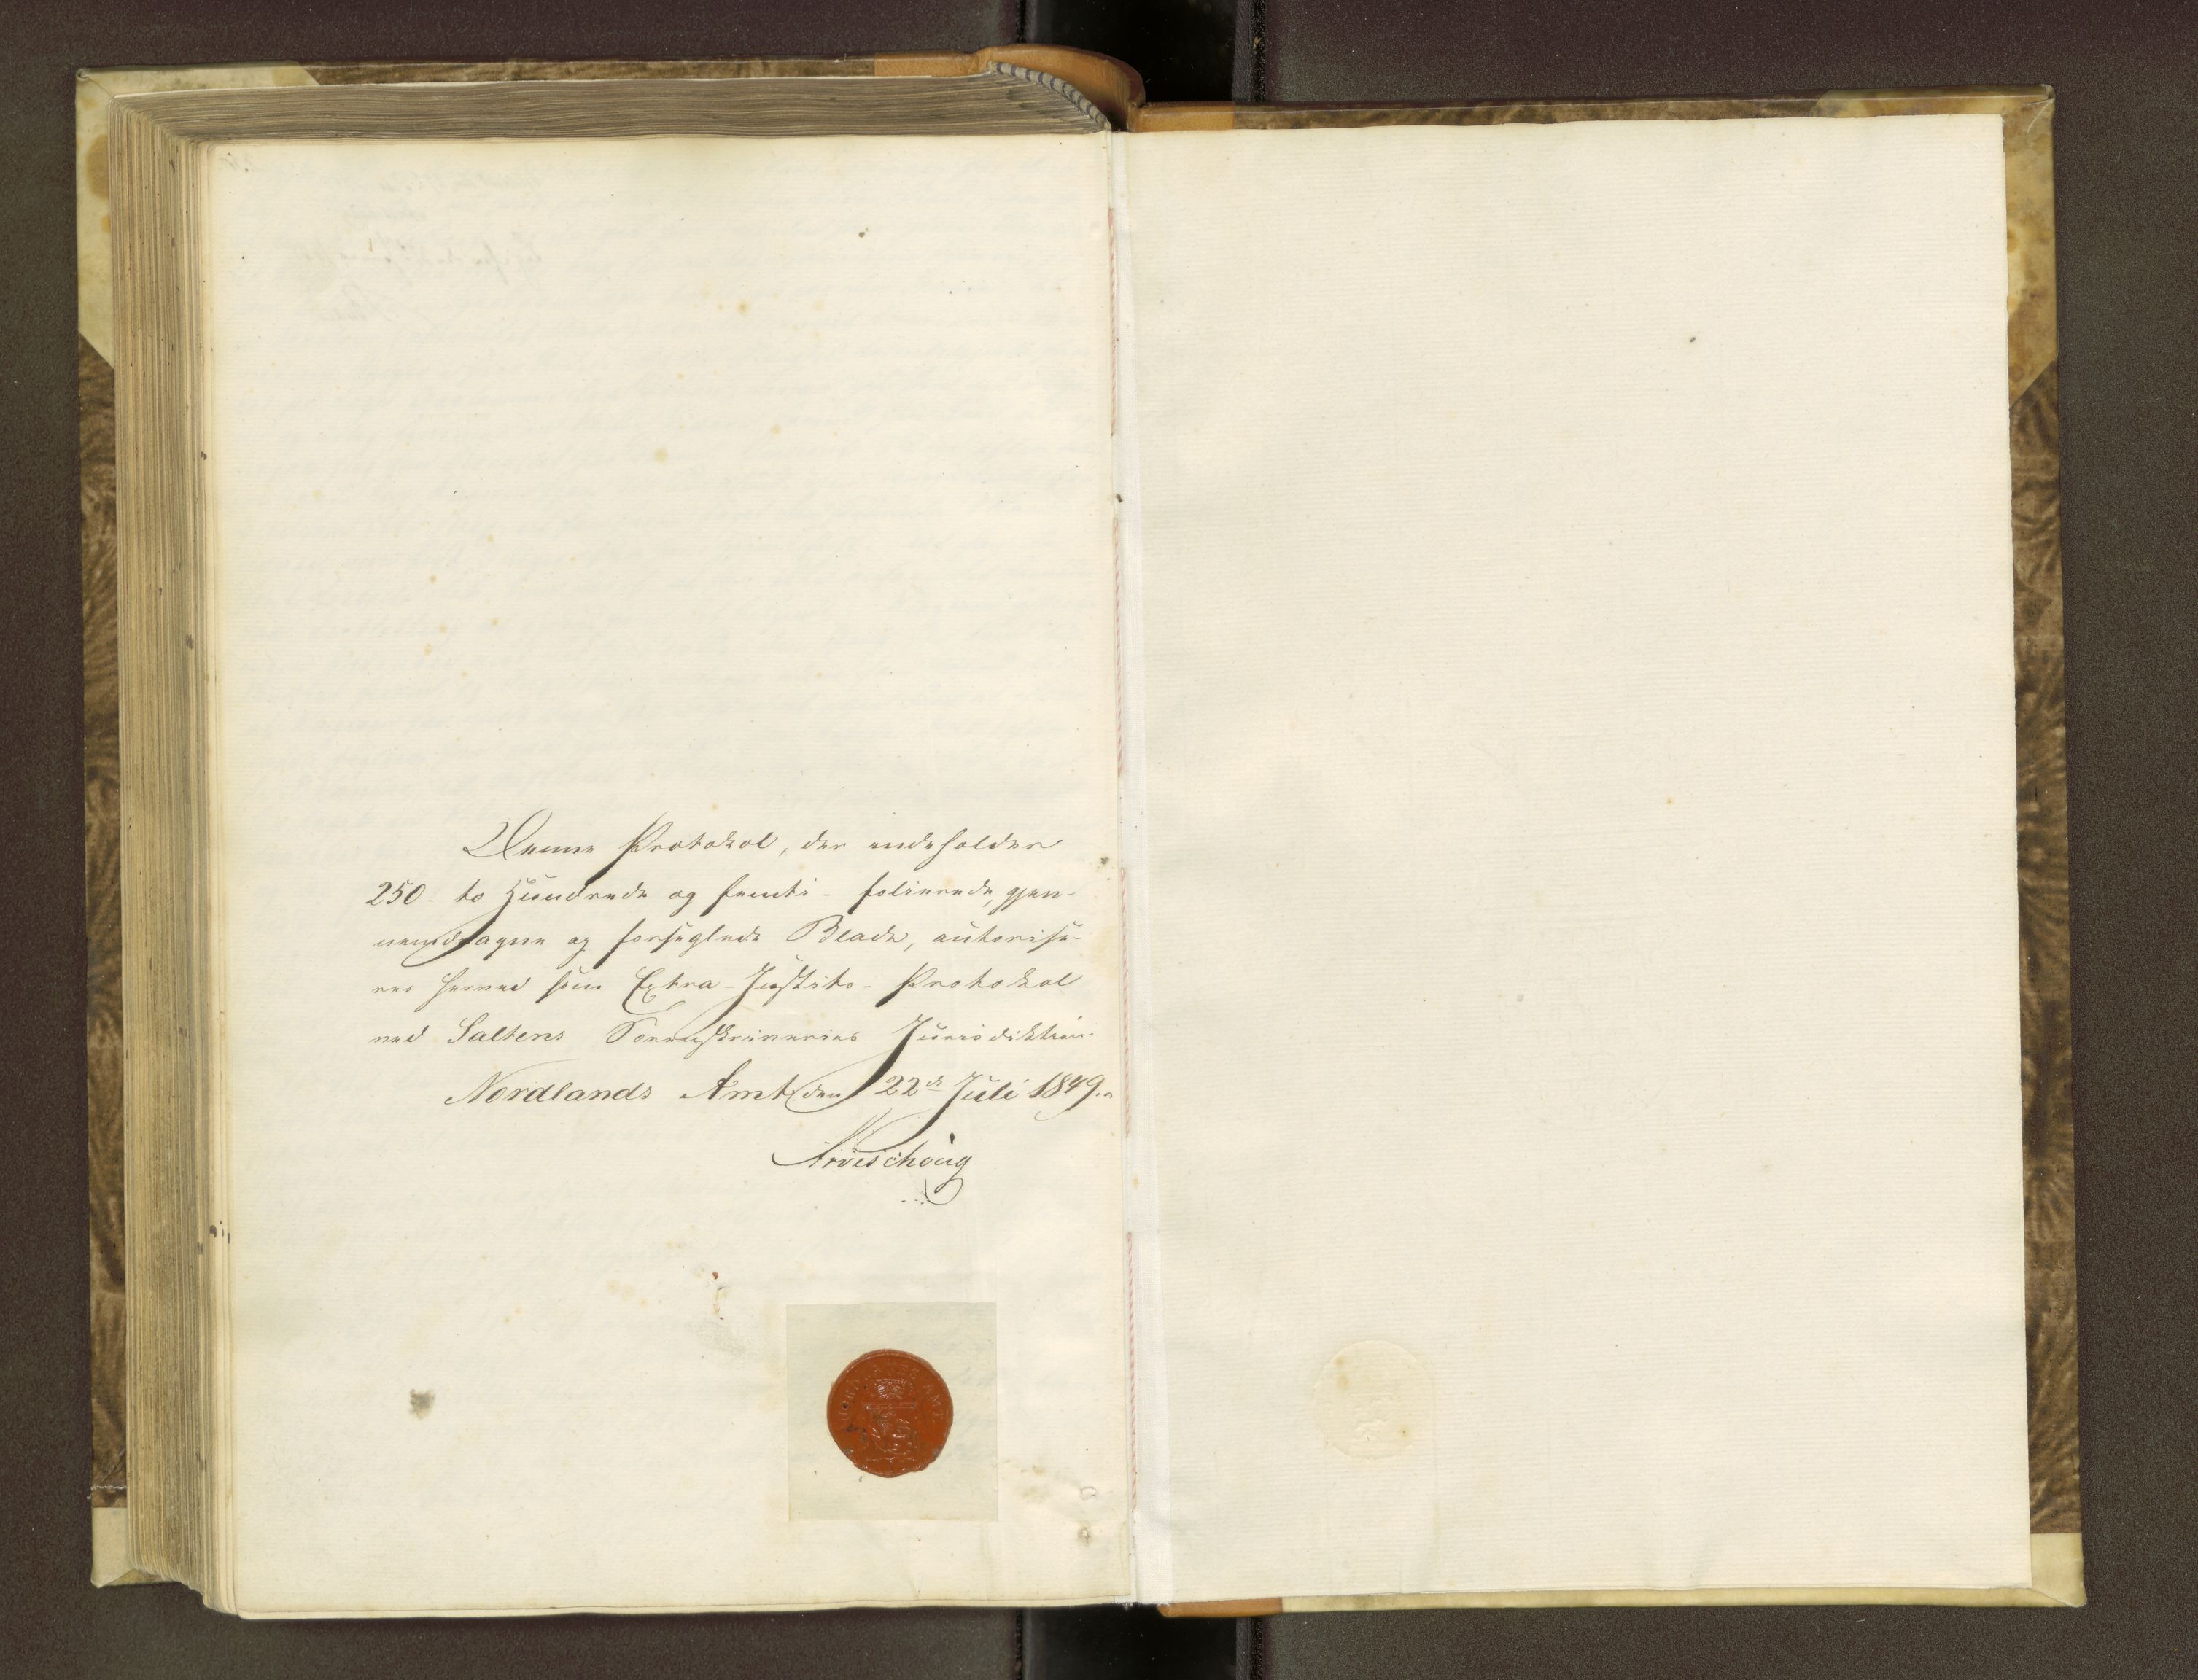 Denne Protokol, der indeholder
250 - to Hundrede og femti - folierede, gjen-
nemdragne og forseglede Blade, autorise-
res herved som Extra-Justits-Protokol
ved Saltens Sorenskriveries Jurisdiktion.
Nordlands Amt den 22de Juli 1849.